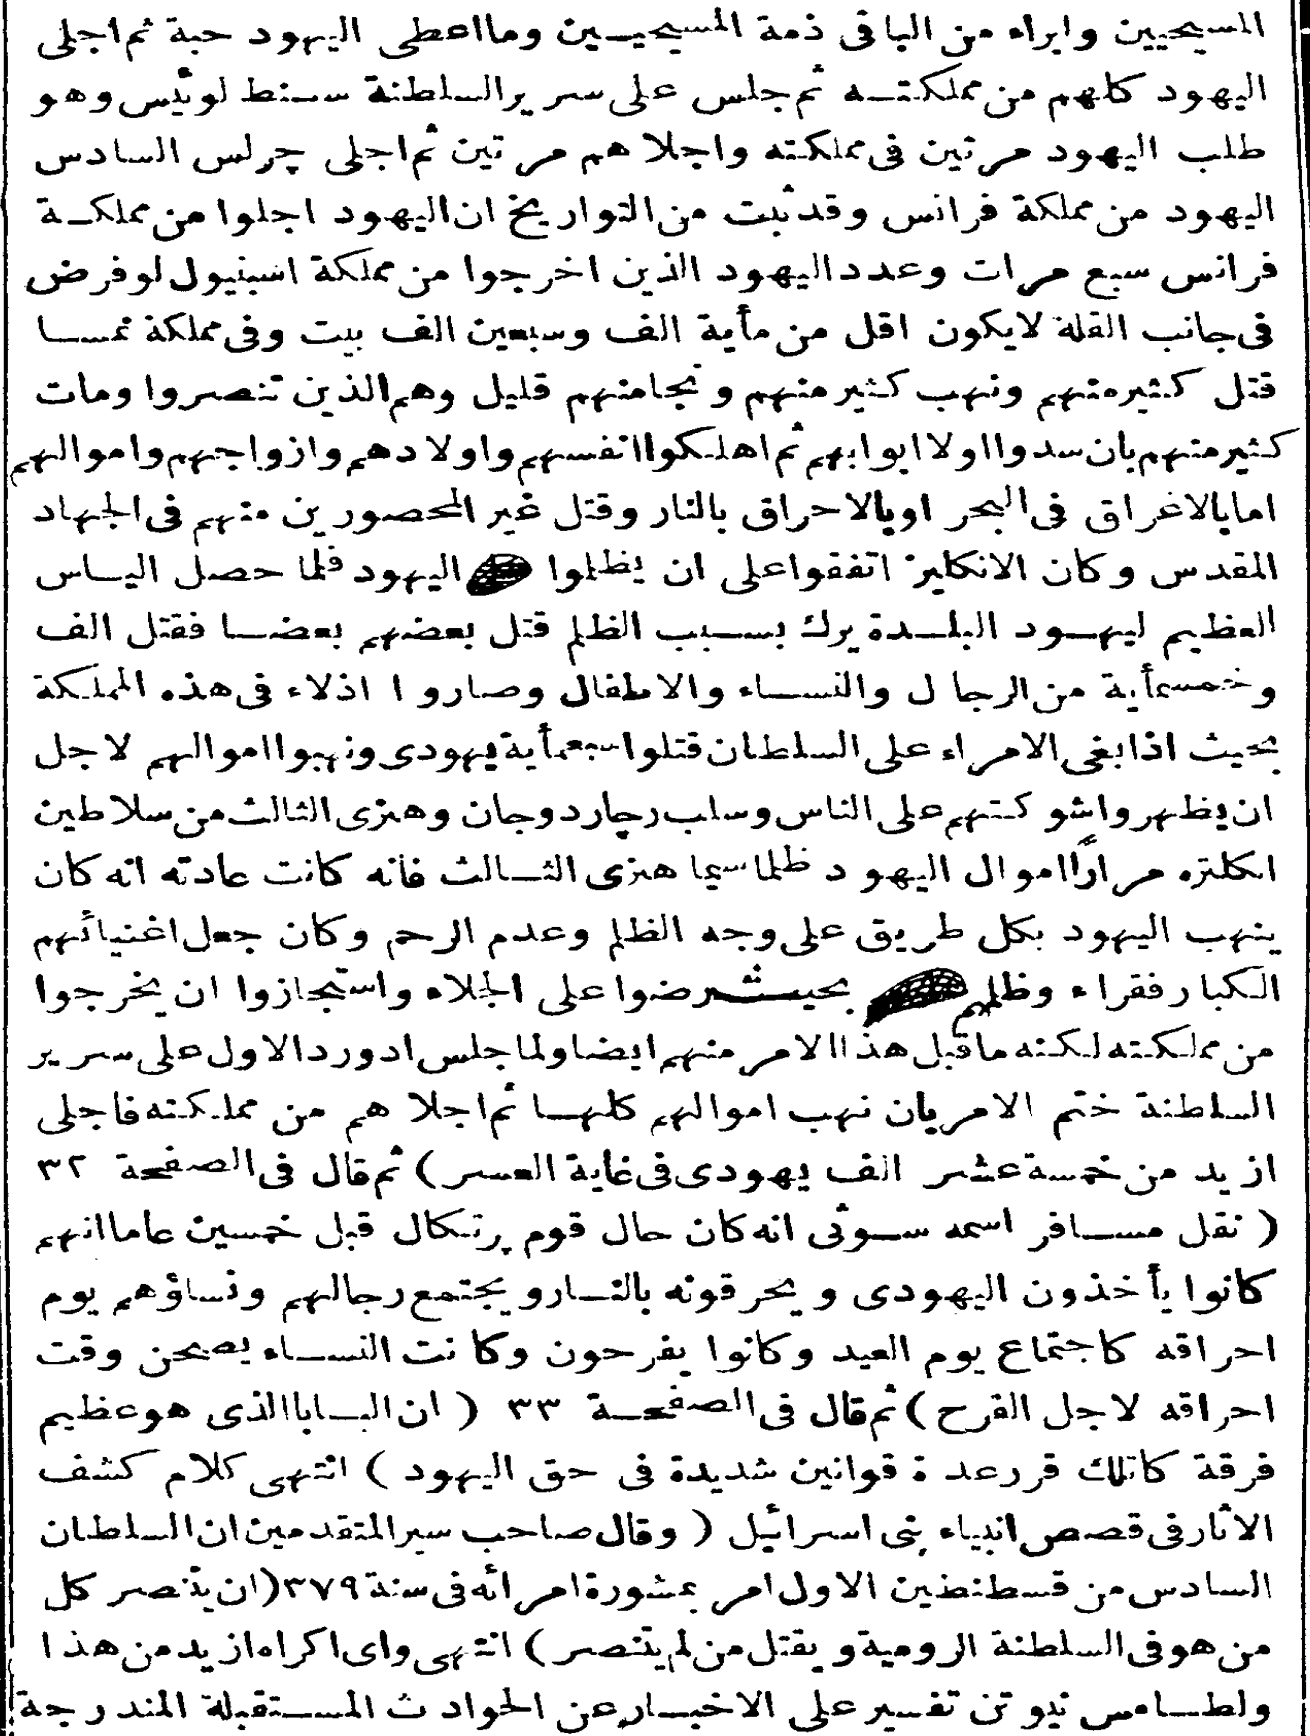 المسيحيين وابراء من الباقى ذمة المسيحيين ومااعطى اليهود حبة ثم اجلى
اليهود كلهم من مملكته ثم جلس على سرير السلطنة سنط لوئيس وهو
طلب اليهود مرتين فى مملكته واجلاهم مرتين ثم اجلى چرلس السادس
اليهود من مملكة فرانس وقد ثبت من التواريخ ان اليهود اجلوا من مملكة
فرانس سبع مرات وعدد اليهود الذين اخرجوا من مملكة اسبنيول لو فرض
فى جانب القلة لايكون اقل من مأية الف وسبعين الف بيت وفى مملكة نمسا
قتل كثير منهم ونهب كثير منهم ونجا منهم قليل وهم الذين تنصروا ومات
كثير منهم بان سدوا اولا ابوابهم ثم اهلكوا انفسهم واولادهم وازواجهم واموالهم
اما بالاغراق فى البحر او بالاحراق بالنار وقتل غير المحصورين منهم فى الجهاد
المقدس وكان الانكليز اتفقوا على ان يظلموا اليهود فلما حصل الياس
العظيم ليهود البلدة يرك بسبب الظلم قتل بعضهم بعضا فقتل الف
وخمسمأية من الرجال والنساء والاطفال وصاروا اذلاء فى هذه المملكة
بحيث اذا بغى الامراء على السلطان قتلوا سبعمأية يهودى ونهبوا اموالهم لاجل
ان يظهروا شوكتهم على الناس وسلب رچارد وجان وهنرى الثالث من سلاطين
انكلتره مرارًا اموال اليهود ظلما سيما هنرى الثالث فانه كانت عادته انه كان
ينهب اليهود بكل طريق على وجه الظلم وعدم الرحم وكان جعل اغنيائهم
الكبار فقراء وظلمهم بحيث رضوا على الجلاء واستجازوا ان يخرجوا
من مملكته لكنه ماقبل هذا الامر منهم ايضا ولما جلس ادورد الاول على سرير
السلطنة ختم الامر بان نهب اموالهم كلها ثم اجلاهم من مملكته فاجلى
ازيد من خمسة عشر الف يهودى فى غاية العسر) ثم قال فى الصفحة ٣٢
( نقل مسافر اسمه سوئى انه كان حال قوم پرتكال قبل خمسين عاما انهم
كانوا يأخذون اليهودى ويحرقونه بالنار ويجتمع رجالهم ونساؤهم يوم
احراقه كاجتماع يوم العيد وكانوا يفرحون وكانت النساء يصحن وقت
احراقه لاجل الفرح) ثم قال فى الصفحة ٣٣ ( ان البابا الذى هو عظيم
فرقة كاتلك قرر عدة قوانين شديدة فى حق اليهود ) انتهى كلام كشف
الاثار فى قصص انبياء بنى اسرائيل ( وقال صاحب سير المتقدمين ان السلطان
السادس من قسطنطين الاول امر بمشورة امرائه فى سنة ٣٧٩ (ان يتنصر كل
من هو فى السلطنة الرومية ويقتل من لم يتنصر) انتهى واى اكراه ازيد من هذا
ولطامس نيوتن تفسير على الاخبار عن الحوادث المستقبلة المندرجة